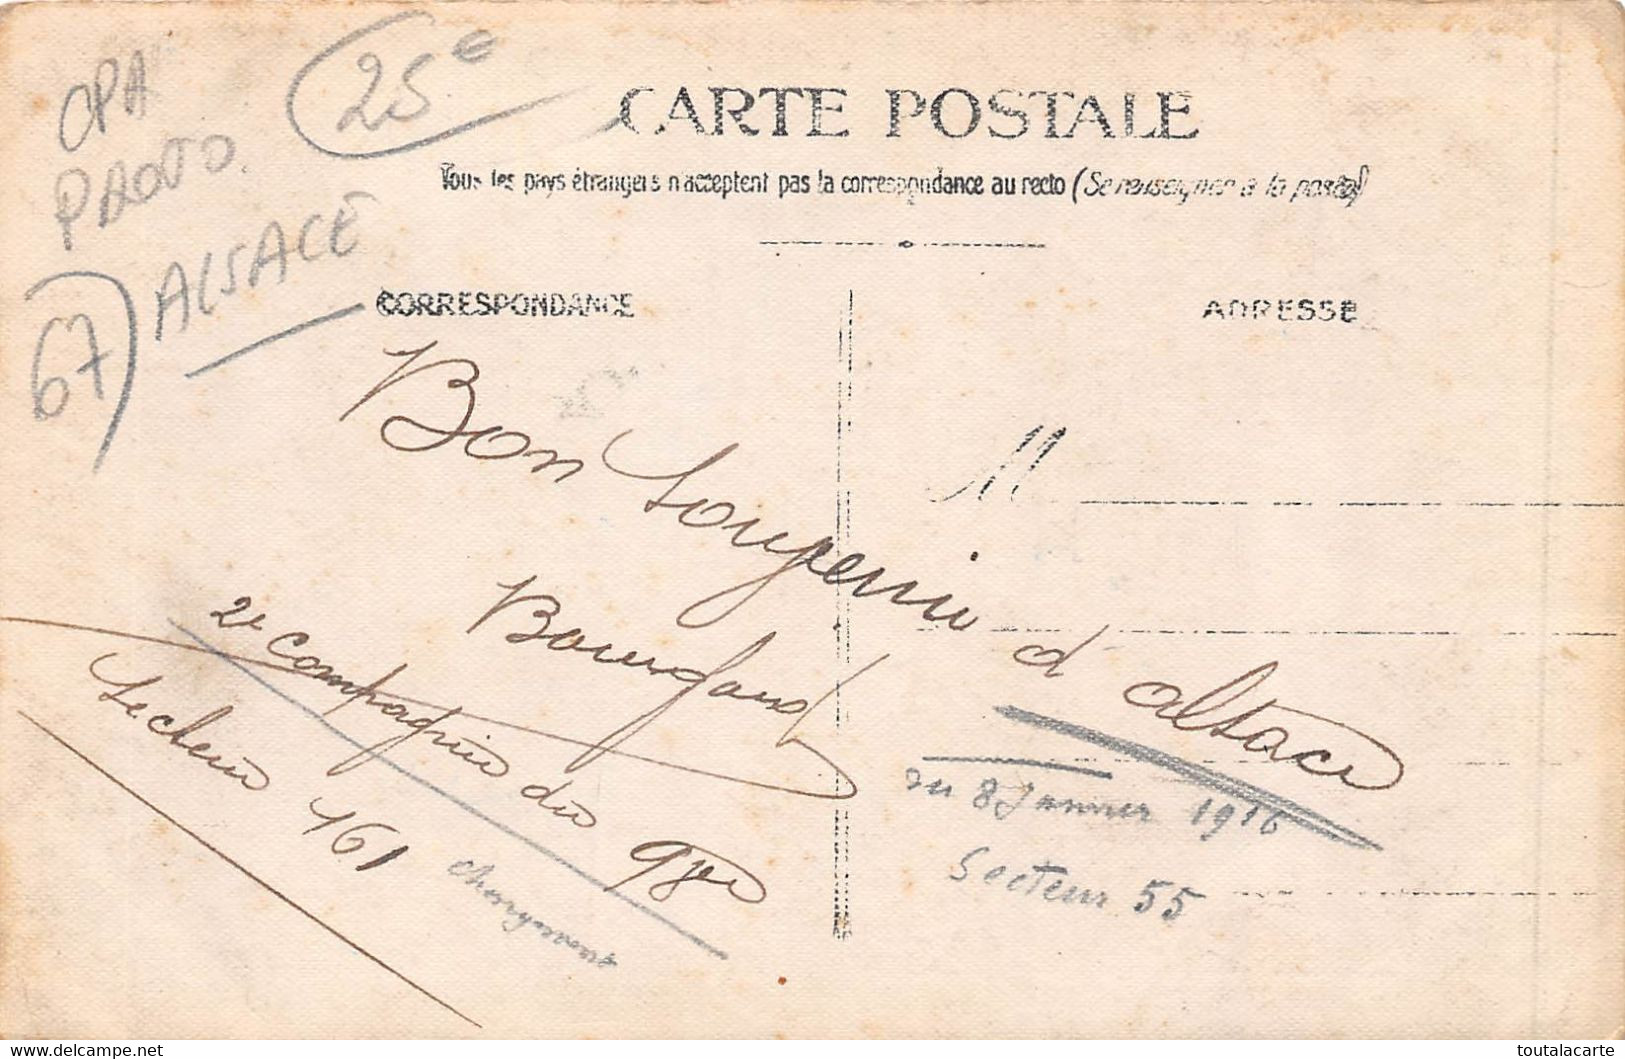 CPA
PHOTO.
25€
67) ALSACE
CARTE POSTALE
Tous les pays étrangers n'acceptent pas la correspondance au recto (Se renseigner à la poste)
CORRESPONDANCE
ADRESSE
M
Bon Souvenir d'alsace
2e Compagnie du 97e
Secteur 161
changement
du 8 Janvier 1916
Secteur 55
delcampe.net
toutalacarte